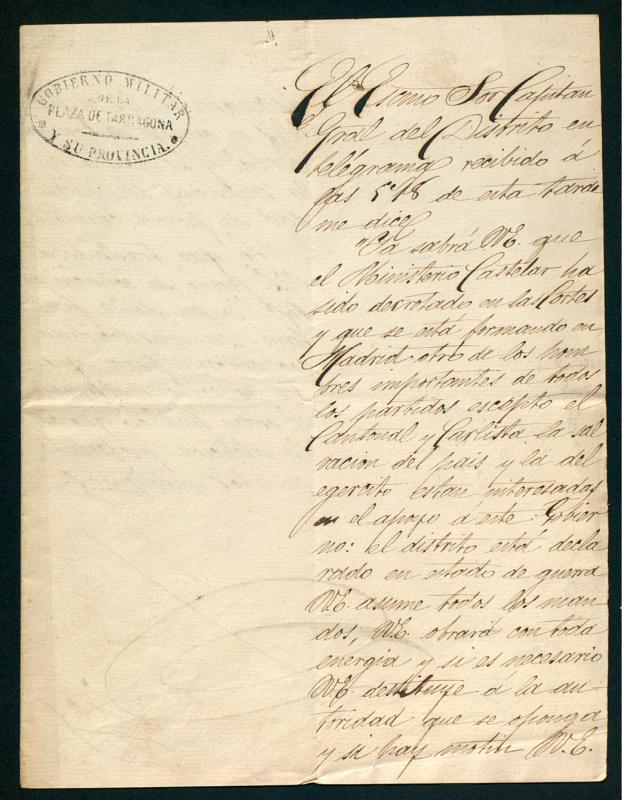 GOBIERNO MILITAR
DE LA
PLAZA DE TARRAGONA
Y SU PROVINCIA.
El Exmo Sor Capitan
Gral del Distrito en
telégrama recibido á
las 5'18 de esta tarde
me dice
"Ya sabrá VE. que
el Ministerio Castelar ha
sido derrotado en las Cortes
y que se está formando en
Madrid otro de los hom
bres importantes de todos
los partidos escepto el
Cantonal y Carlista, la sal
vacion del pais y la del
egercito estan interesadas
en el apoyo á este Gobier
no: el distrito está decla
rado en estado de guerra
VE. asume todos los man
dos, VE. obrará con toda
energia y si es necesario
VE. destituye á la au
toridad que se oponga
y si hay motin VE.